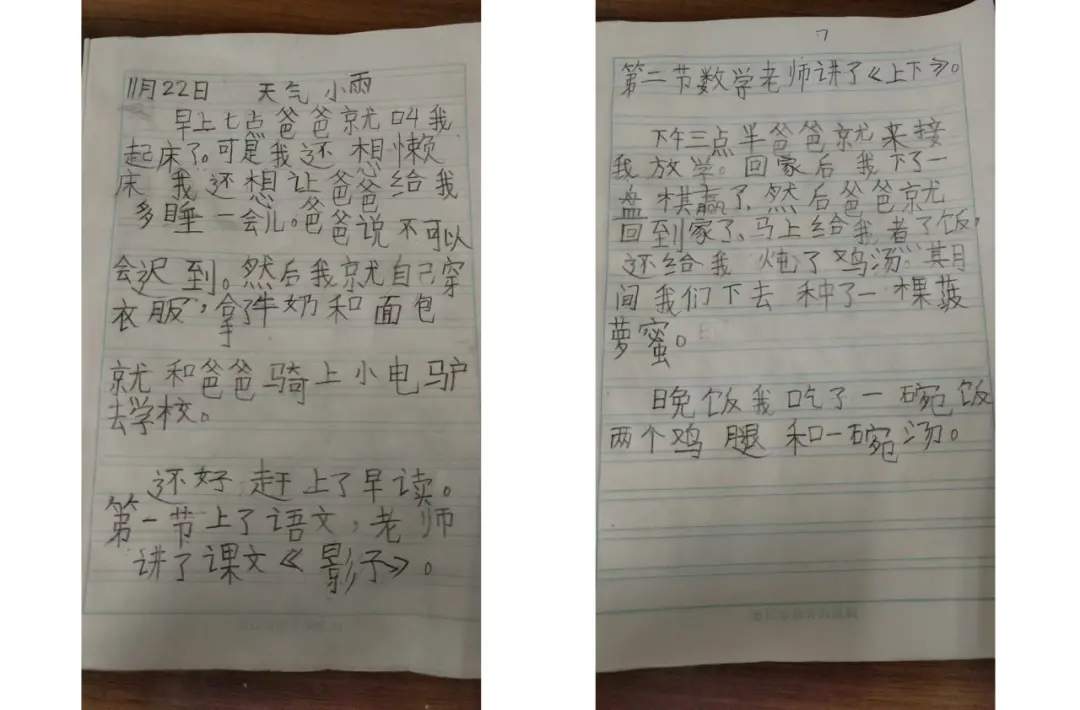 11月22日 天气 小雨
早上七点爸爸就叫我
起床了。可是我还想懒
床 我还想让爸爸给我
多睡一会儿。爸爸说不可以
会迟到。然后我就自己穿
衣服，拿了牛奶和面包
就和爸爸骑上小电驴
去学校。
还好赶上了早读。
第一节上了语文，老师
讲了课文《影子》。
第二节数学老师讲了《上下》。
下午三点半爸爸就来接
我放学。回家后我下了一
盘棋赢了，然后爸爸就
回到家了、马上给我煮了饭，
还给我炖了鸡汤。其月
间我们下去种了一棵菠
萝蜜。
晚饭我吃了一碗饭
两个鸡腿和一碗汤。